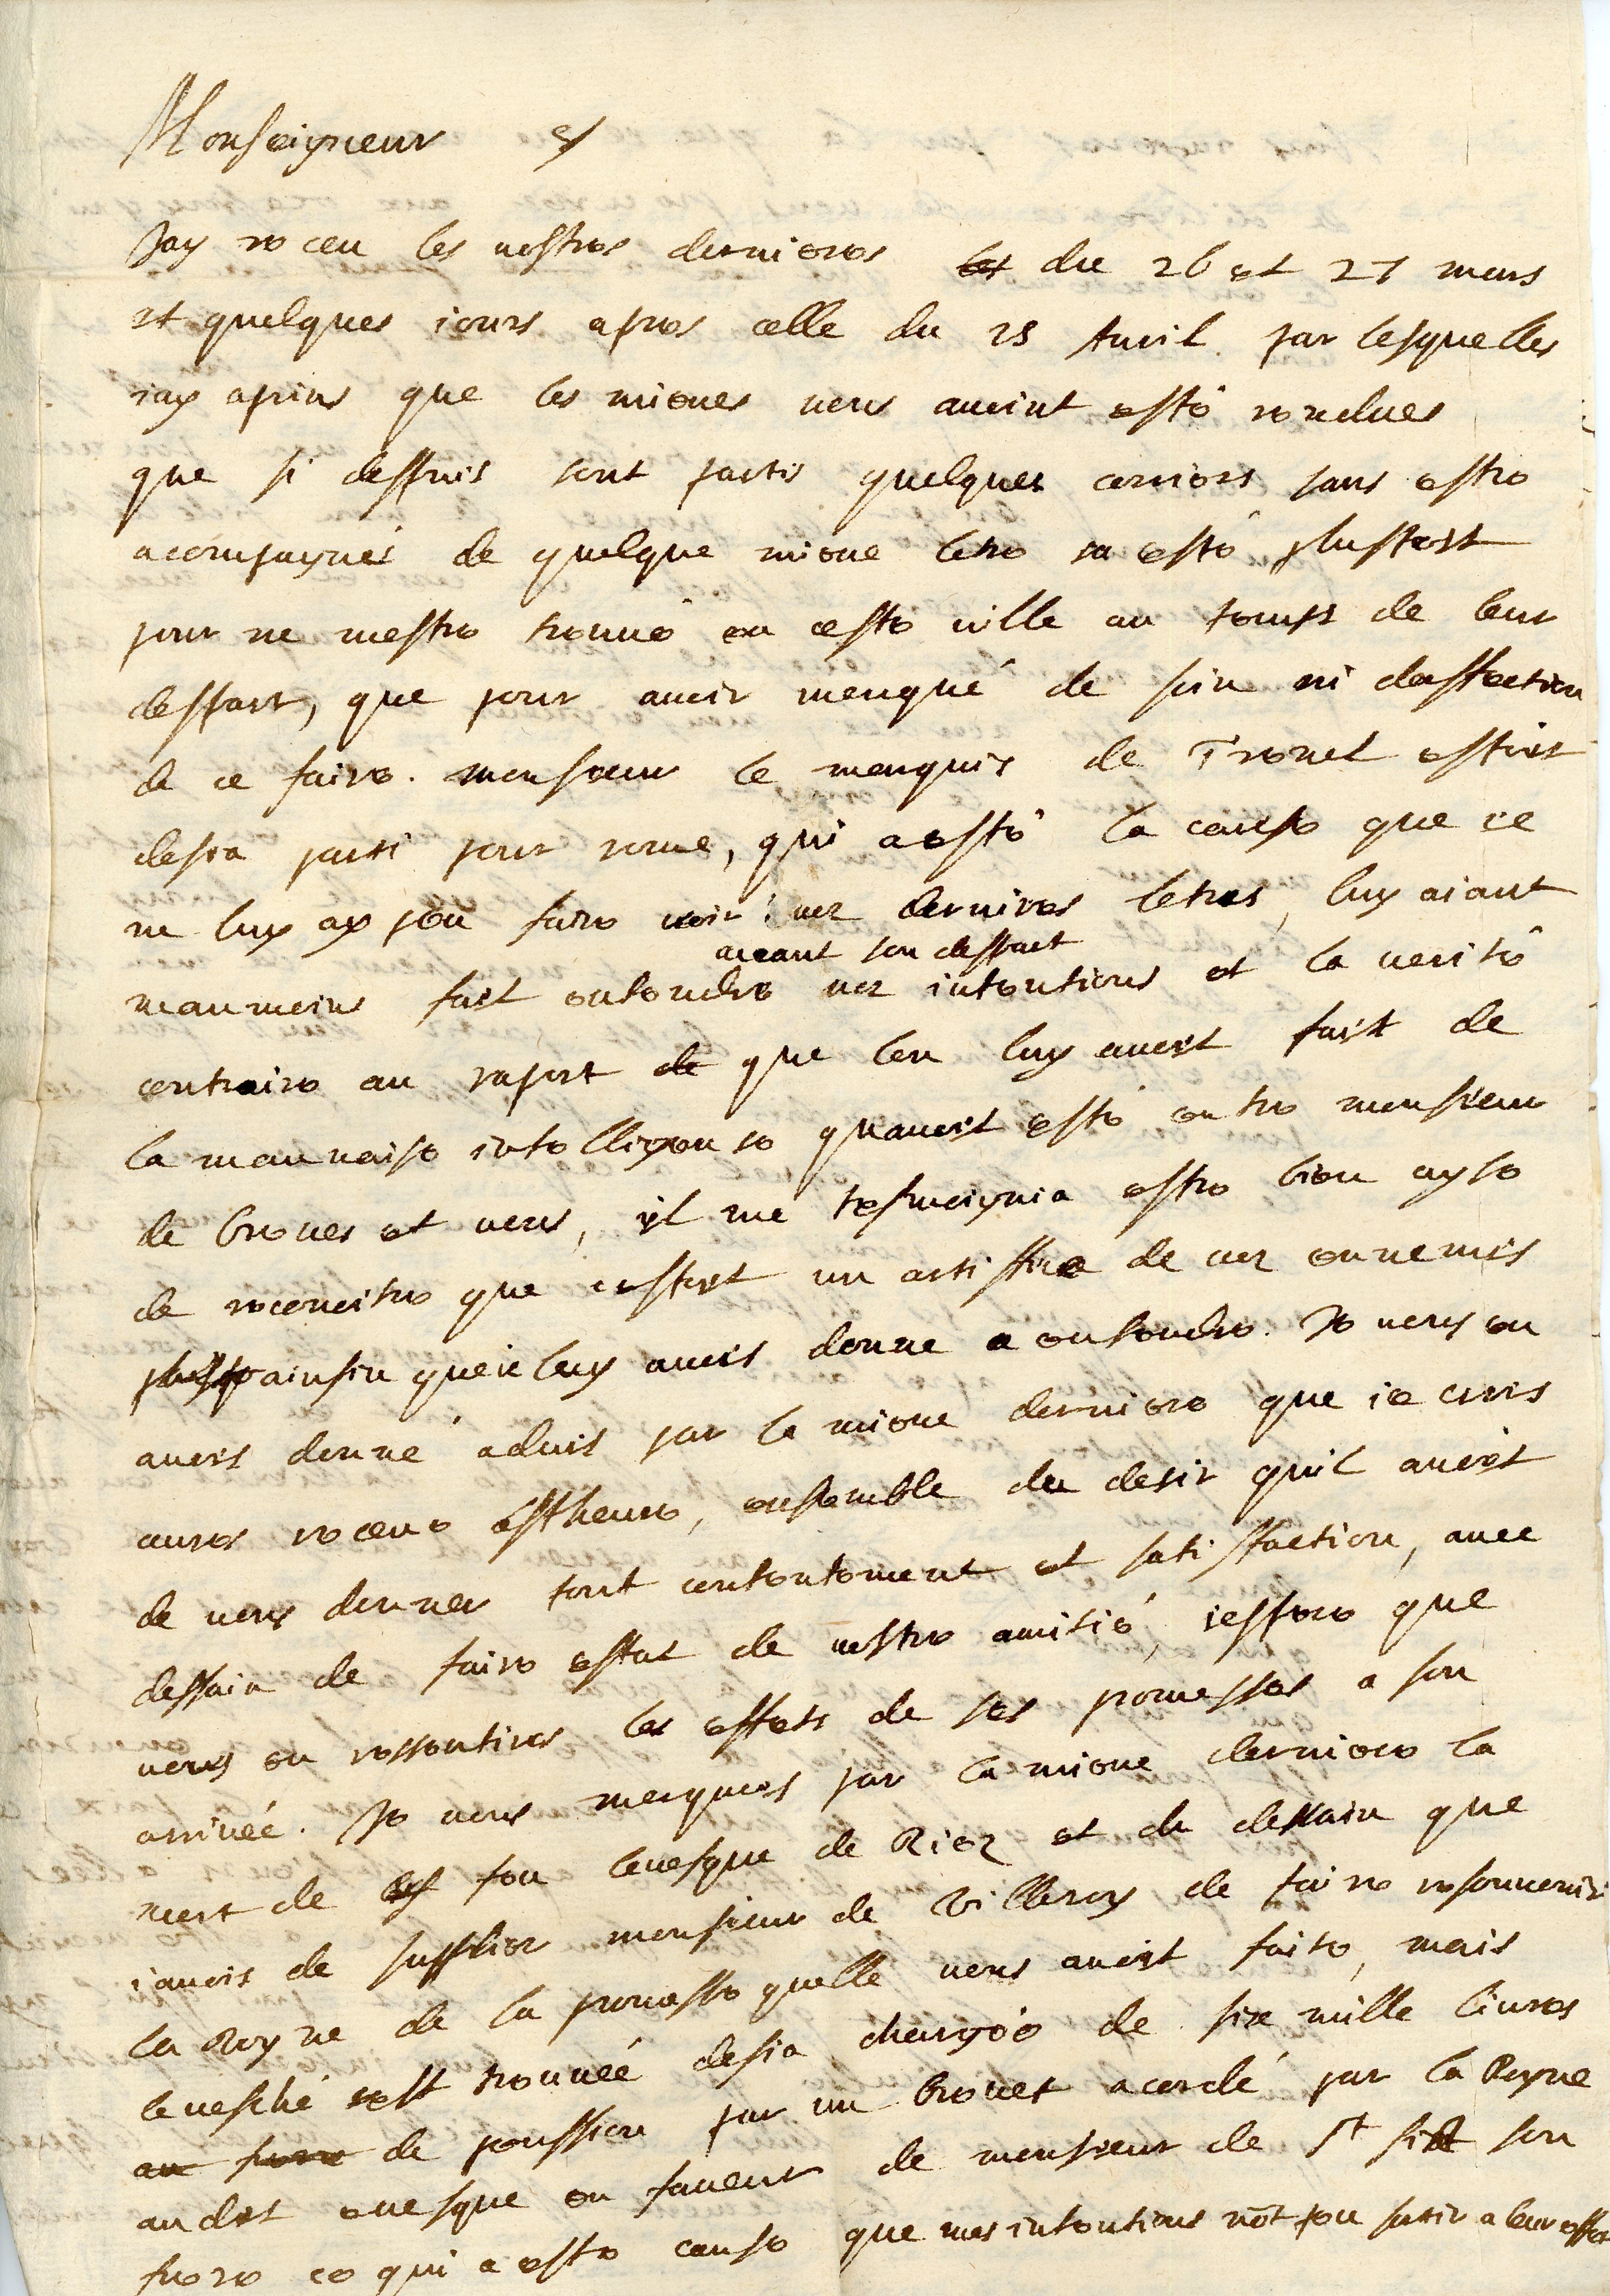 Monseigneur
Jay receu les vostres dernieres les du 26 et 27 mars
et quelques iours apres celle du 25 Auril par lesquelles
iay aprins que les mienes vous auoint esté rendues
que si despuis sont partis quelques couriers sans estre
acompagnés de quelque miene letre sa esté plustost
pour ne mestre trouué en ceste uille au temps de leur
despart, que pour auoir menqué de soin ni daffection
de ce faire. monsieur le marquis de Tresnel estoit
desia parti pour rome, qui a esté la cause que ie
ne luy ay peu faire uoir uoz dernires letres, luy aiant
auant son despart
neanmoins fait entendre uoz intentions et la uerité
contraire au raport de que lon luy auoit fait de
la mauuaise intelligense quauoit esté entre monsieur
de breues et uous, il me tesmoignia estre bien ayse
de reconoitre que cestoit un artiffice de uoz ennemis
ainsin que ie luy auois donne a entendre. Je uous en
auois donné aduis par la miene derniere que ie crois
aures receue astheure, ensemble du desir quil auoit
de uous donner tout contentement et satisfaction, auec
dessain de faire estat de uostre amitié, iespere que
uous en ressentires les effets de ses promesses a son
arriuéé. Je uous merquois par la miene derniere la
mort de feu leuesque de Riez et du dessain que
iauois de supplier monsieur de Villeroy de faire resouuenir
la Royne de la promesse quelle uous auoit faite, mais
leuesché sest trouuéé desia chargéé de six mille liures
au frere de pension par un breuet acordé par la Royne
audit euesque en faueur de monsieur de St sixt son
frere ce qui a este cause que mes intentions nōt peu sortir a leur effet